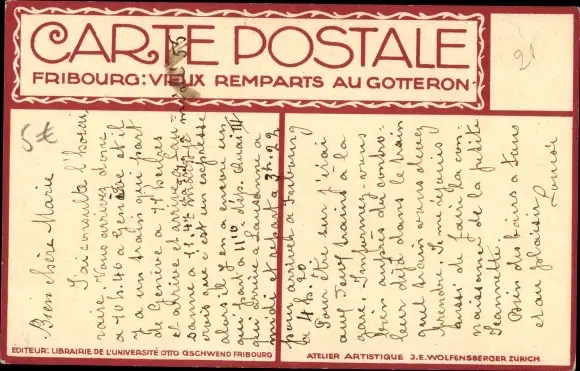 CARTE POSTALE
FRIBOURG: VIEUX REMPARTS AU GOTTERON
5€
Bien chère Marie
J'ai consulté l'horai
raire. Vous arrivez donc
à 10 h. 40 à Genève et il
y a un train qui part
de Genève à 11
et arrive à Lau-
sanne à 11.42
crois que c'est un express
alors il y en a encore un
qui part à 11 10 dép. quai III
qui arrive à Lausanne à
midi et repart à
pour arriver à Fribourg
à 4 h. 20
Pour être sur j'irai
aux deux trains à la
gare. Informez-vous
bien auprès du contro-
leur déjà dans le train
quel train vous devez
prendre. Je me réjouis
aussi de faire la con-
naissance de la petite
Jeannette.
Bien des baisers à tous
et au plaisir
Louise
EDITEUR: LIBRAIRIE DE L'UNIVERSITÉ OTTO GSCHWEND FRIBOURG
ATELIER ARTISTIQUE J.E. WOLFENSBERGER ZÜRICH